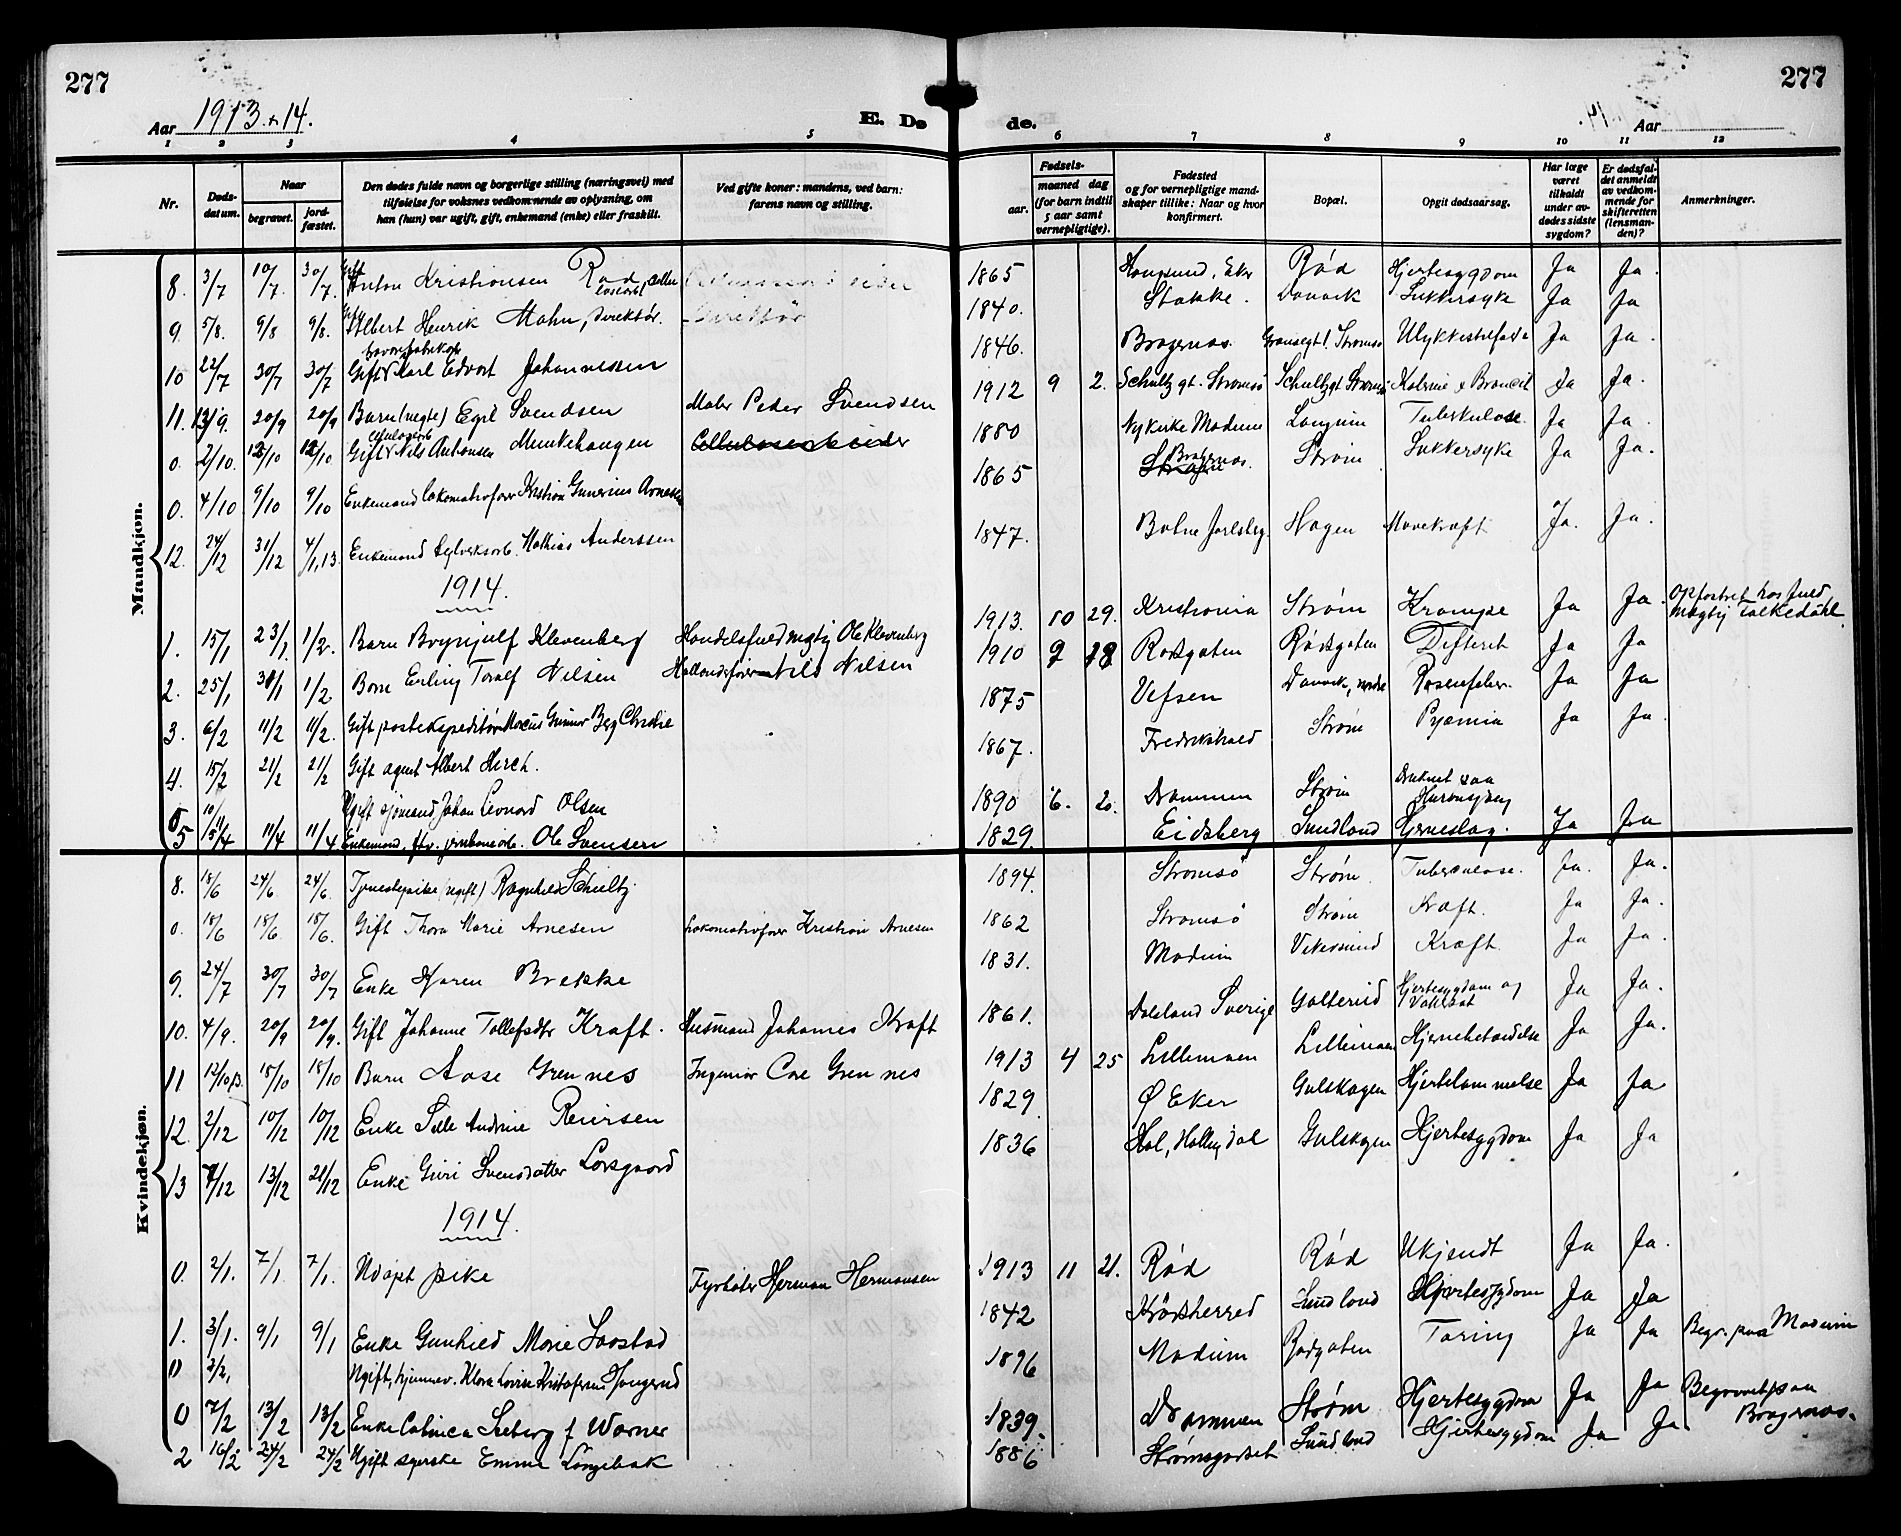 277
277
Aar 1913 & 14.
E. Dø
de.
Aar
1 2 3 4 5 6 7 8 9 10 11 12
Nr.
Døds-
datum.
Naar
begravet.
jord-
fæstet.
Den dødes fulde navn og borgerlige stilling (næringsvei) med
tilføielse for voksnes vedkommende av oplysning, om
han (hun) var ugift, gift, enkemand (enke) eller fraskilt.
Ved gifte koner: mandens, ved barn:
farens navn og stilling.
Fødsels-
aar.
maaned dag
(for barn indtil
5 aar samt
vernepligtige).
Fødested
og for vernepligtige mand-
skaper tillike: Naar og hvor
konfirmert.
Bopæl.
Opgit dødsaarsag.
Har læge
været
tilkaldt
under av-
dødes sidste
sygdom?
Er dødsfal-
det anmeldt
av vedkom-
mende for
skifteretten
(lensman-
den)?
Anmerkninger.
Mandkjøn.
8. 3/7 10/7 30/7 Gift Anton Kristiansen Rød 1865 Haugsund, Eker Rød Hjertesygdom Ja Ja.
9. 5/8. 9/8 9/8. Gift Albert Henrik Mahn, Direktør. Direktør 1840. Stokke. Danvik Sukkersyke Ja Ja
10 22/7 30/7 30/7 Gift Karl Edvart Johannessen 1846. Bragernæs. Strømsø Ulykkestilfælde Ja Ja.
11. 13/9. 20/9 20/9 Barn (uegte) Egil Svendsen Maler Peder Svendsen 1912 9 2. Schultz gt. Strømsø Schultzgt Strømsø Ja Ja.
0. 2/10. 12/10 12/10 Gift Nils Anthonsen Munkehaugen Celluloseerbeider 1880 Nykirke Modum Langum Tuberkulose Ja Ja
0. 4/10 9/10 9/10 Enkemand lokomotivfører Kristian Gunerius Arnesen 1865 Bragernæs. Strøm Sukkersyke Ja Ja.
12. 24/12 31/12 4/1,13. Enkemand Mathias Anderssen 1847. Botne Jarlsberg. Hagen Mavekræft Ja. Ja.
1914.
1. 15/1 23/1. 1/2. Barn Brynjulf Klevenberg Handelsfuldmægtig Ole Klevenberg 1913. 10 29. Kristiania Strøm Krampe Ja Ja. Opfostret hos fuld
mægtig Falkedahl.
2. 25/1 31/1 1/2 Barn Erling Toralf Nilsen Nils Nilsen 1910 9 18 Rødsgaten Rødsgaten Difterit Ja Ja
3. 6/2 11/2 11/2. Gift postekspeditør Marcus Gunnar Berg Christie 1875 Vefsen Danvik, nedre Rosenfeber. Ja Ja
4. 15/2 21/2 21/2 Gift agent Albert Hirch. 1867. Fredrikshald Strøm Pyæmia Ja Ja.
0 10/11 Ugift sjømand Johan Leonard Olsen 1890 6. 2. Drammen Strøm Druknet paa
5 15/4 11/4 11/4 Enkemand, fhv. jernbanearb. Ole Svensen 1829 Eidsberg Sundland Hjerneslag. Ja Ja
Kvindekjøn.
8. 18/6 24/6 24/6. Tjenestepike (ugift) Ragnhild Schultz. 1894. Strømsø Strøm. Tuberculose. Ja. Ja.
0. 15/6 18/6. 18/6. Gift Thora Marie Arnesen Lokomotivfører Kristian Arnesen 1862 Strømsø Strøm Kræft. Ja Ja.
9. 24/7 30/7 30/7 Enke Karen Brekke 1831. Modum Vikersund Kræft. Ja Ja.
10. 4/9. 20/9 20/9. Gift Johanne Tollefsdtr Kraft. Husmand Johannes Kraft 1861. Dalsland Sverige Galterud Hjertesygdom og
Vattersot Ja Ja.
11 12/10 p. 18/10 18/10 Barn Aase Grennes Ingeniør Grennes 1913 4 25 Lillemoen Lillemoen Hjernebetændelse Ja Ja.
12. 2/12 10/12 10/12 Enke Andrine Reiersen 1829 Ø Eker Gulskogen Hjertelammelse Ja Ja
13 7/12 13/12 21/12 Enke Guri Svensdatter Lorsgaard 1836 Hol, Hallingdal Gulskogen Hjertesygdom Ja Ja
1914.
0. 2/1. 7/1 7/1. Udøpt pike Fyrbøter Herman Hermansen 1913 11 21. Rød Rød Ukjendt Ja Ja.
1. 3/1. 9/1 9/1 Enke Gunhild Marie Saastad 1842 Krødsherred Sundland Hjertesygdom Ja Ja
0 3/2, Ugift, hjemmev. Klara Lovise Kristofersen Haugerud 1896 Modum Rødgaten Tæring Ja Ja Begr. paa Modum
0 7/2 13/2 13/2 Enke Seeberg f Warner 1839. Drammen Strøm Hjertesygdom Ja Ja Begravet paa
Bragernæs.
2 16/2 24/2 24/2 Ugift syerske Emma Langebak 1886 Strømsgodset Sundland Hjertesygdom Ja Ja